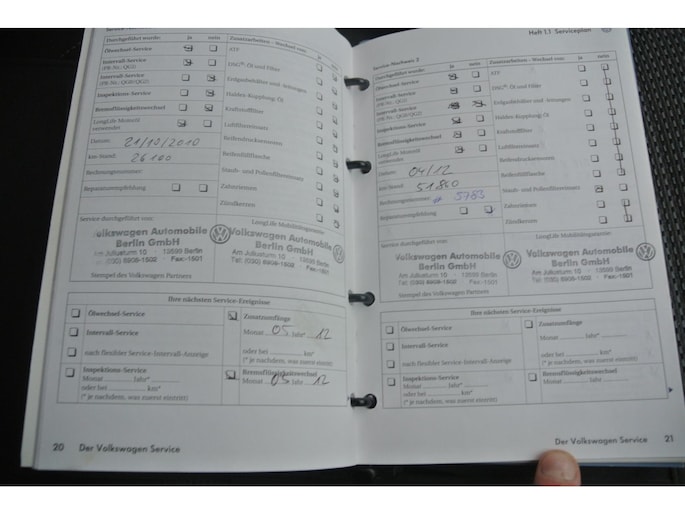 Service-
Durchgeführt wurde: ja nein
Ölwechsel-Service
Intervall-Service
(PR-Nr.: QG0)
Intervall-Service
(PR-Nr.: QG0/QG2)
Inspektions-Service
Bremsflüssigkeitswechsel
LongLife Motoröl
verwendet
Datum: 21/10/2010
km-Stand: 26 100
Rechnungsnummer:
Reparaturempfehlung
Service durchgeführt von:
Volkswagen Automobile
Berlin GmbH
Am Juliusturm 10 · 13599 Berlin
Tel: (030) 8908-1502 Fax:-1501
Stempel des Volkswagen Partners
Zusatzarbeiten - Wechsel von: ja nein
ATF
DSG®-Öl und Filter
Erdgasbehälter und -leitungen
Haldex-Kupplung-Öl
Kraftstofffilter
Luftfiltereinsatz
Reifendruckwarnung
Reifenfüllflasche
Staub- und Pollenfiltereinsatz
Zahnriemen
Zündkerzen
LongLife Mobilitätsgarantie:
Volkswagen Automobile
Berlin GmbH
Am Juliusturm 10 · 13599 Berlin
Tel: (030) 8908-1502 Fax:-1501
Ihre nächsten Service-Ereignisse
Ölwechsel-Service
Intervall-Service
nach flexibler Service-Intervall-Anzeige
Inspektions-Service
Monat Jahr*
oder bei km*
(* je nachdem, was zuerst eintritt)
Zusatzumfänge
Monat 05 Jahr* 12
oder bei km*
(* je nachdem, was zuerst eintritt)
Bremsflüssigkeitswechsel
Monat 05 Jahr 12
20 Der Volkswagen Service
Heft 1.1 Serviceplan
Service-Nachweis 2
Durchgeführt wurde: ja nein
Ölwechsel-Service
Intervall-Service
Intervall-Service
(PR-Nr.: QG0/QG2)
Inspektions-Service
Bremsflüssigkeitswechsel
LongLife Motoröl
verwendet
Datum: 04/12
km-Stand: 51860
Rechnungsnummer: # 5783
Reparaturempfehlung
Service durchgeführt von:
Volkswagen Automobile
Berlin GmbH
Am Juliusturm 10 · 13599 Berlin
Tel: (030) 8908-1502 Fax:-1501
Stempel des Volkswagen Partners
Zusatzarbeiten - Wechsel von: ja nein
ATF
DSG®-Öl und Filter
Erdgasbehälter und -leitungen
Haldex-Kupplung-Öl
Kraftstofffilter
Luftfiltereinsatz
Reifendruckwarnung
Reifenfüllflasche
Staub- und Pollenfiltereinsatz
Zahnriemen
Zündkerzen
LongLife Mobilitätsgarantie:
Volkswagen Automobile
Berlin GmbH
Am Juliusturm 10 · 13599 Berlin
Tel: (030) 8908-1502 Fax:-1501
Ihre nächsten Service-Ereignisse
Ölwechsel-Service
Intervall-Service
nach flexibler Service-Intervall-Anzeige
Inspektions-Service
Monat Jahr*
oder bei km*
(* je nachdem, was zuerst eintritt)
Zusatzumfänge
Monat Jahr*
oder bei km*
(* je nachdem, was zuerst eintritt)
Bremsflüssigkeitswechsel
Monat Jahr
Der Volkswagen Service 21